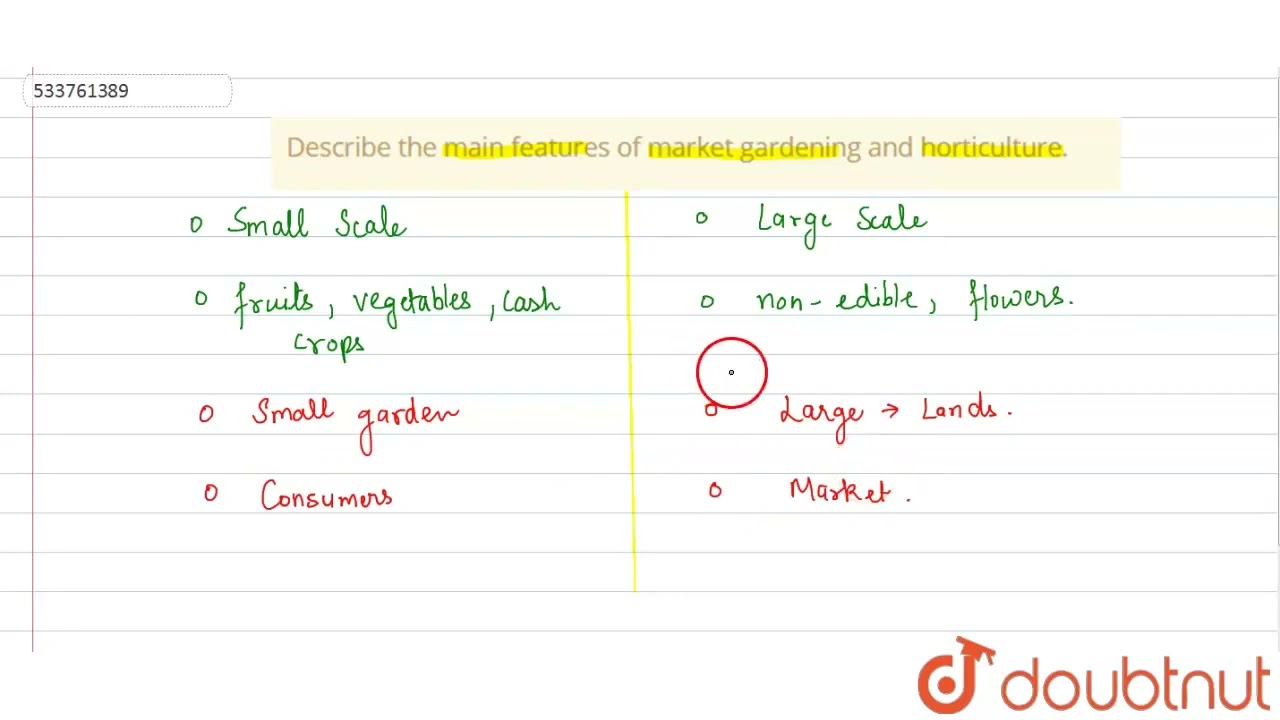 533761389
Describe the main features of market gardening and horticulture.
Small Scale
fruits, vegetables, cash
crops
Small garden
Consumers
Large Scale
non-edible, flowers.
Large → Lands.
Market.
doubtnut